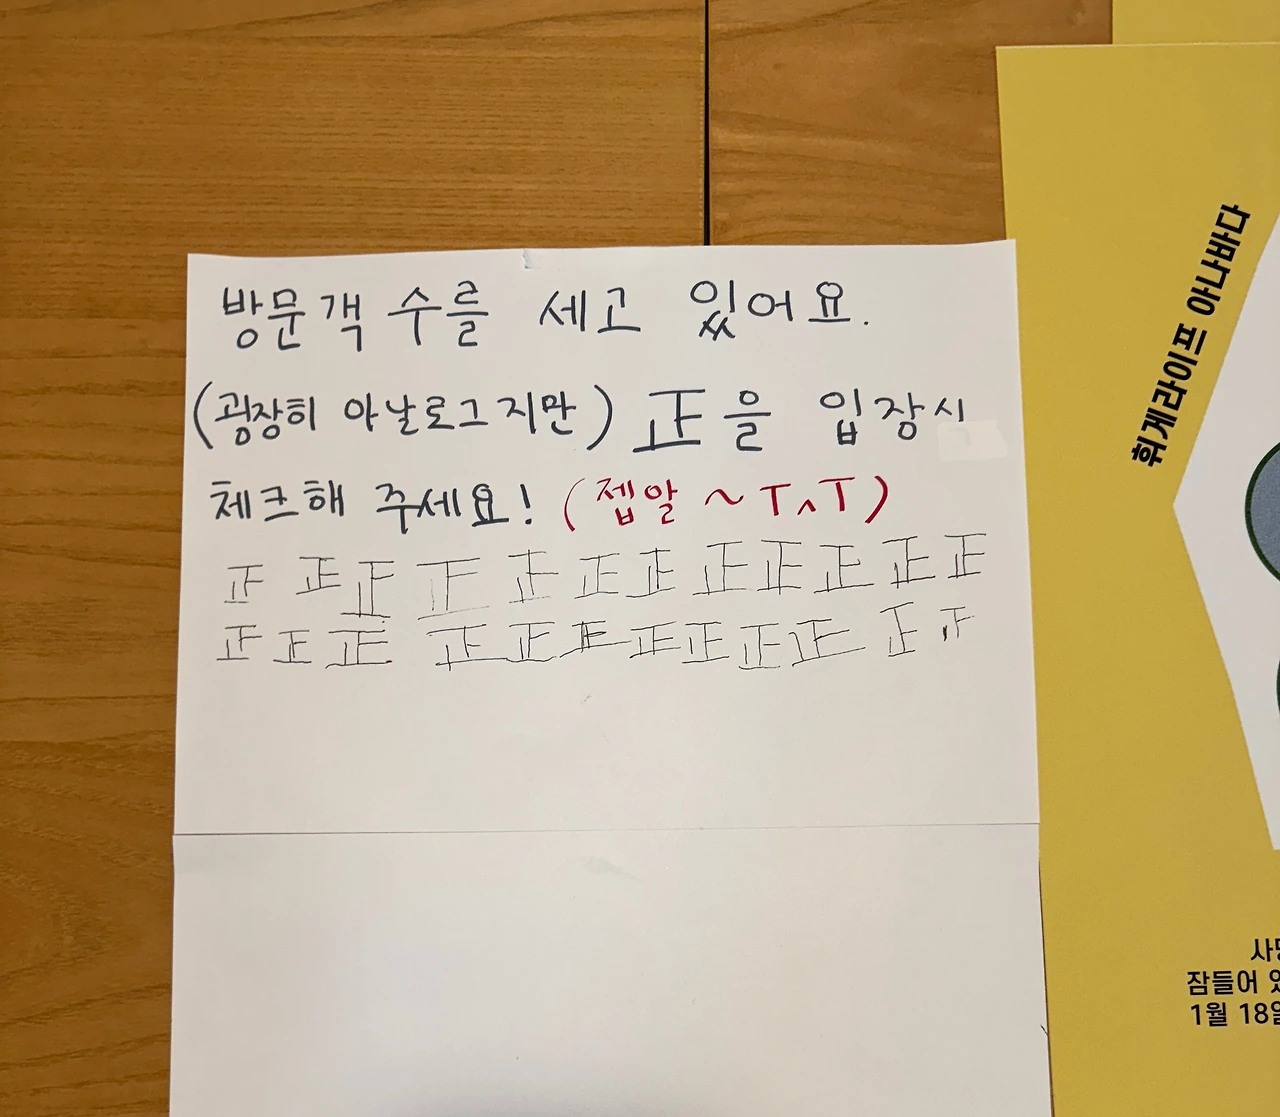 방문객 수를 세고 있어요.
(굉장히 아날로그지만) 正을 입장시
체크해 주세요! (젭알 ~ T^T)
正 正 正 正 正 正 正 正 正 正 正 正
正 正 正 正 正 正 正 正 正 正 正
휘게라이프 아나바다
잠들어
1월 18일